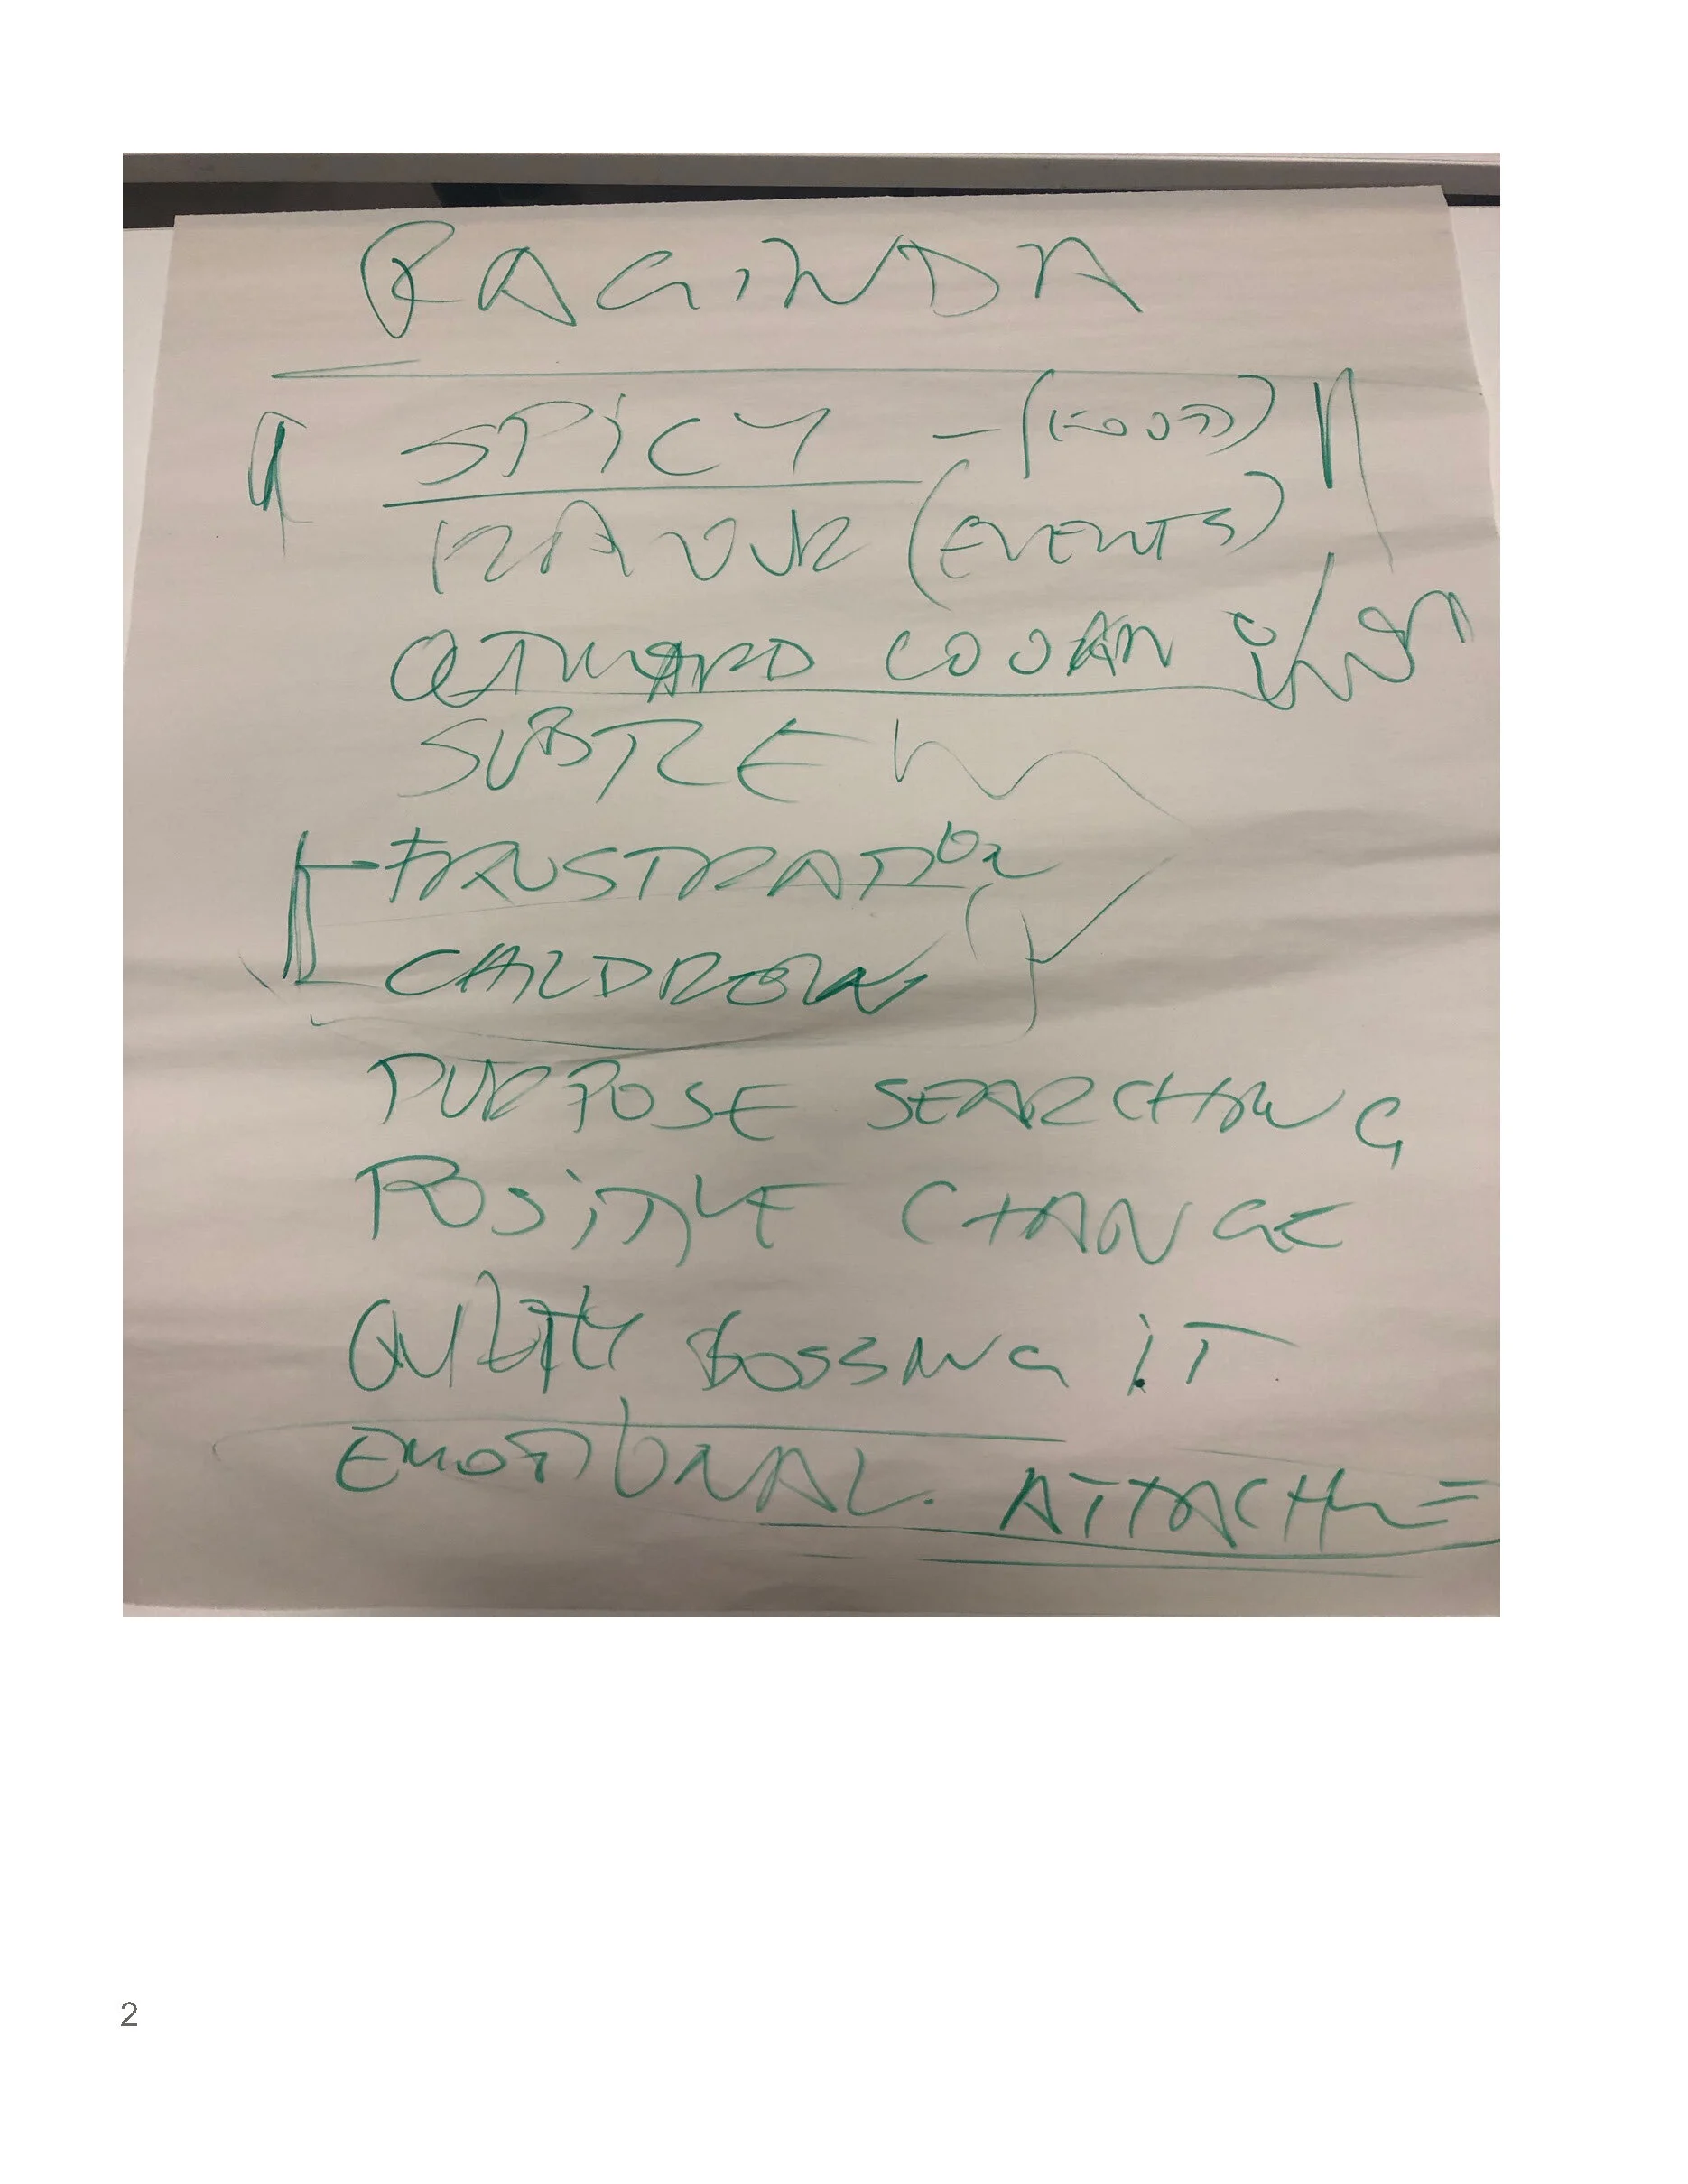 RAGINDA
SPICY - (FOOD)
FLAVUR (EVENTS)
SUBTLE
FRUSTRATION
CALDRON
PURPOSE SEARCHING
POSITIVE CHANGE
BOSSING IT
EMOTIONAL. ATTACH
2